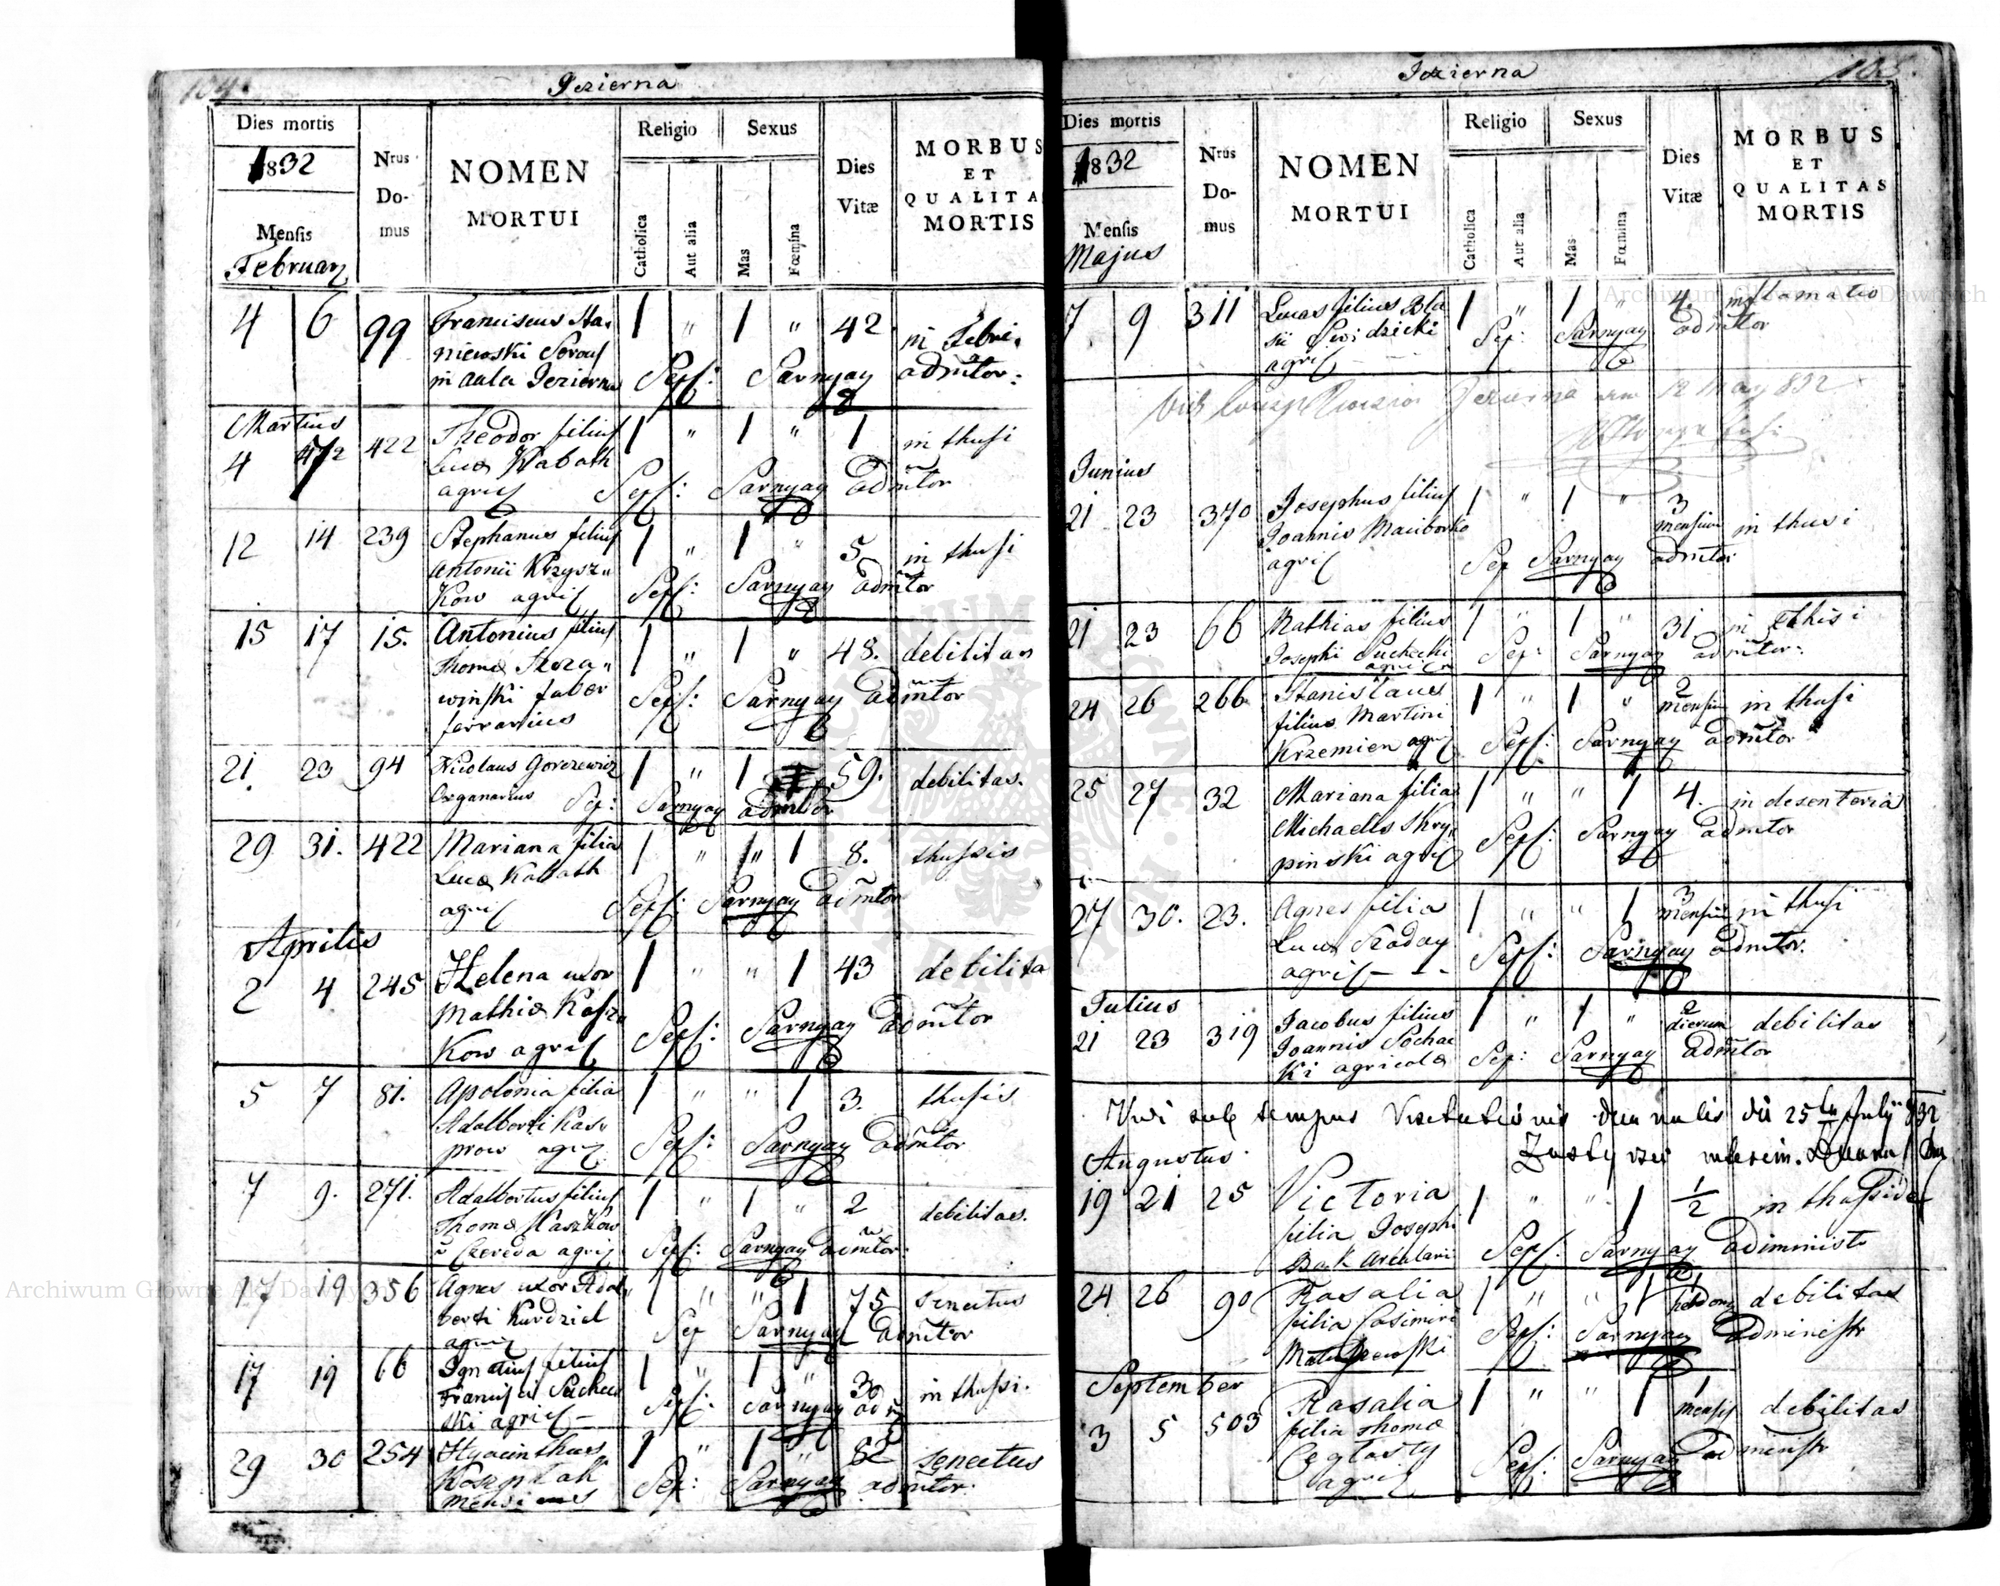 104.
Jezierna
Dies mortis
1832
Mensis
February
Nrus Do- mus
NOMEN
MORTUI
Religio
Catholica
Aut alia
Sexus
Mas
Fœmina
Dies
Vitæ
MORBUS
ET
QUALITA
MORTIS
4 6 99 Franciscus Sta-
niewski
in aula Jezierna
1 " 1 " 42 in Febri
Sep: Sarnyay admtor:
Martius
4 422 Theodor filius
Lucæ Kabath
agric
1 " 1 " 1 in thusi
Sep: Sarnyay admtor
12 14 239 Stephanus filius
Antonii Krzysz-
kow agric
1 " 1 " 5 in thusi
Sep: Sarnyay admtor
15 17 15. Antonius filius
Thomæ
winski faber
ferrarius
1 " 1 " 48. debilitas
Sep: Sarnyay admtor
21. 23 94 Nicolaus Gorczewicz
Organarius
1 " 1 59. debilitas.
Sep: Sarnyay admtor
29 31. 422 Mariana filia
Lucæ Kabath
agric
1 " " 1 8. thussis
Sep: Sarnyay admtor
Aprilis
2 4 245 Helena uxor
Mathiæ Kasz-
kow agric
1 " " 1 43 debilita
Sep: Sarnyay admtor
5 7 81. Apolonia filia
Adalberti Kas-
prow agric
1 " " 1 3. thusis
Sep: Sarnyay admtor
7 9. 271. Adalbertus filius
Thomæ Kaszkow
Czereda agric
1 " 1 " 2 debilitas.
Sep: Sarnyay admtor.
17 19 356 Agnes uxor Adal-
berti Kurdziel
agric
1 " " 1 75 senectus
Sep Sarnyay admtor
17 19 66 Ignatius filius
Francisci Suchec
ki agric
1 " 1 " in thussi.
Sep: Sarnyay
29 30 254 Hyacinthus
1 " 1 " 82 senectus
Sep: Sarnyay admtor.
105.
Jezierna
Dies mortis
1832
Mensis
Majus
Nrus Do- mus
NOMEN
MORTUI
Religio
Catholica
Aut alia
Sexus
Mas
Fœmina
Dies
Vitæ
MORBUS
ET
QUALITAS
MORTIS
7 9 311 Lucas filius Bla
sii Swidzicki
agric
1 " 1 " 4. inflamatio
Sep: Sarnyay admtor
Jezierna 12 May 832
Junius
21 23 370 Josephus filius
Joannis Maciborko
agric
1 " 1 " 3
mensium in thusi
Sep Sarnyay admtor
21 23 66 Mathias filius
Josephi Suchecki
agric
1 " 1 " 31 in Ethisi
Sep: Sarnyay admtor:
24 26 266 Stanislaus
filius Martini
Krzemien agric
1 " 1 " 2
mensium in thusi
Sep: Sarnyay admtor
25 27 32 Mariana filia
Michaelis Skry-
pinski agric
1 " " 1 4. in desenteria
Sep: Sarnyay admtor
27 30. 23. Agnes filia
Lucæ
agric - - -
1 " " 1 3
mensium in thusi
Sep: Sarnyay admtor.
Julius
21 23 319 Jacobus filius
Joannis Sochac
ki agricolæ
1 " 1 " 2
dierum debilitas
Sep: Sarnyay admtor
Vidi sub tempus Visitationis 25 July 832
Augustus.
19 21 25 Victoria
filia Josephi
Bak
1 " " 1 1/2 in thusside
Sep: Sarnyay administr
24 26 90 Rosalia
filia Casimiri
Matuszewski
1 " " 1 1
hebdom debilitas
Sep: Sarnyay administr
September
3 5 503 Rosalia
filia Thomæ
Ceglasty
agric
1 " " 1 1
mensis debilitas
Sep: Sarnyay administr
Archiwum Główne Akt Dawnych
Archiwum Główne Akt Dawnych